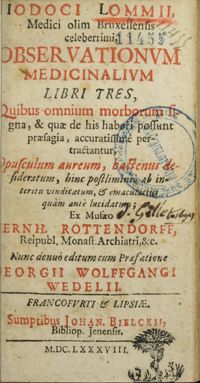 IODOCI LOMMII,
Medici olim Bruxellensis
celeberrimi,
11455
OBSERVATIONVM
MEDICINALIVM
LIBRI TRES,
Quibus omnium morborum si-
gna, & quæ de his haberi possunt
præsagia, accuratissimè per-
tractantur.
Opusculum aureum, hactenus de-
sideratum, hinc postliminio ab in-
teritu vindicatum, & emaculatius
quàm antè lucidatum;
Ex Musæo
BERNH. ROTTENDORFF,
Reipubl. Monast. Archiatri, &c.
Nunc denuò editum cum Præfatione
GEORGII WOLFFGANGI
WEDELII.
FRANCOFVRTI & LIPSIÆ.
Sumptibus JOHAN. BIELCKII,
Bibliop. Jenensis.
M.DC.LXXXVIII.